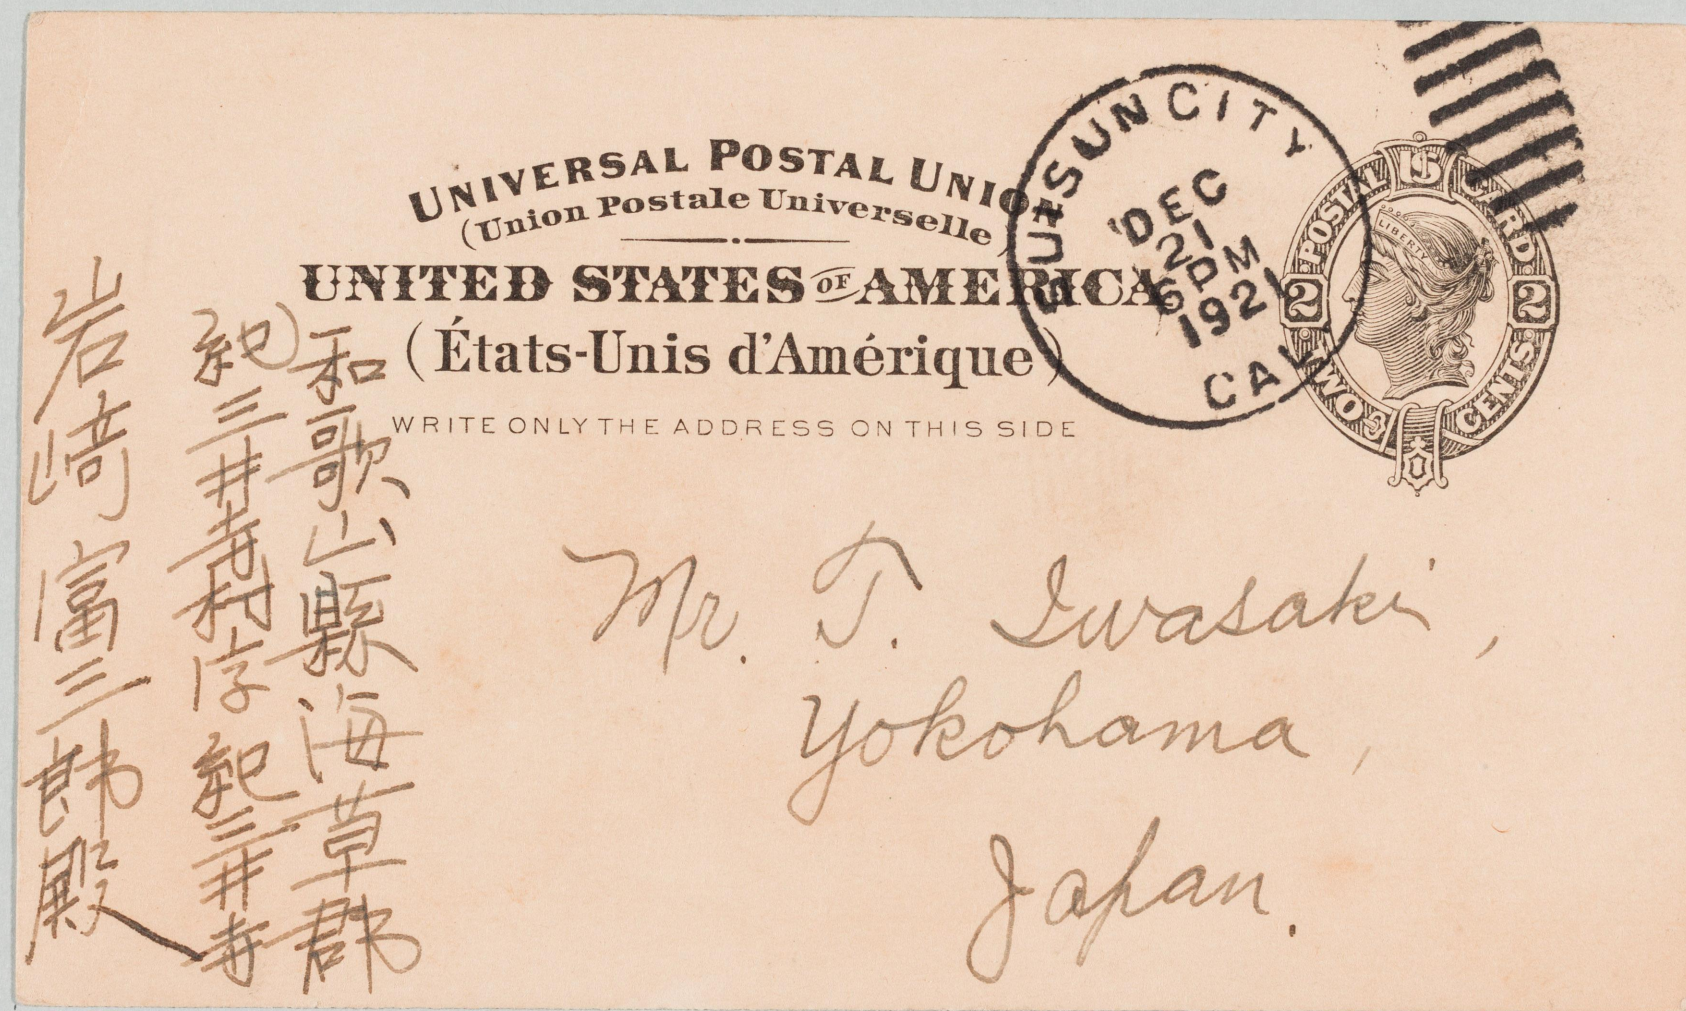 UNIVERSAL POSTAL UNION
(Union Postale Universelle)
UNITED STATES OF AMERICA
(États-Unis d'Amérique)
WRITE ONLY THE ADDRESS ON THIS SIDE
SUISUN CITY
DEC
21
6 PM
1921
CAL
POSTAL CARD
US
LIBERTY
2 2
TWO CENTS
Mr. T. Iwasaki,
Yokohama,
Japan.
和歌山縣海草郡
紀三井寺村字紀三井寺
岩﨑富三郎殿